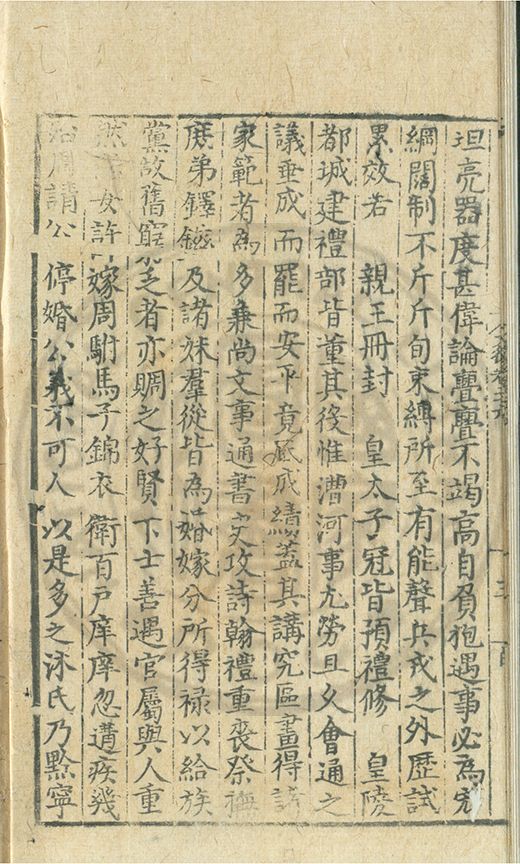 坦亮器度甚偉論亹亹不竭高自負抱遇事必為究
綱闊制不斤斤旬束縛所至有能聲兵戎之外歷試
累效若 親王冊封 皇太子冠皆預禮修 皇陵
都城建禮部皆董其役惟漕河事尤勞且久會通之
議垂成而罷而安平竟底成績蓋其講究區畫得諸
家範者為多兼尚文事通書史攻詩翰禮重喪祭撫
庶弟鐸鑑及諸妹羣從皆為婚嫁分所得祿以給族
黨故舊窮乏者亦賙之好賢下士善遇官屬與人重
然 女許嫁周駙馬子錦衣衛百戶庠庠忽遘疾幾
殆周請公停婚公義不可人以是多之沐氏乃黔寧